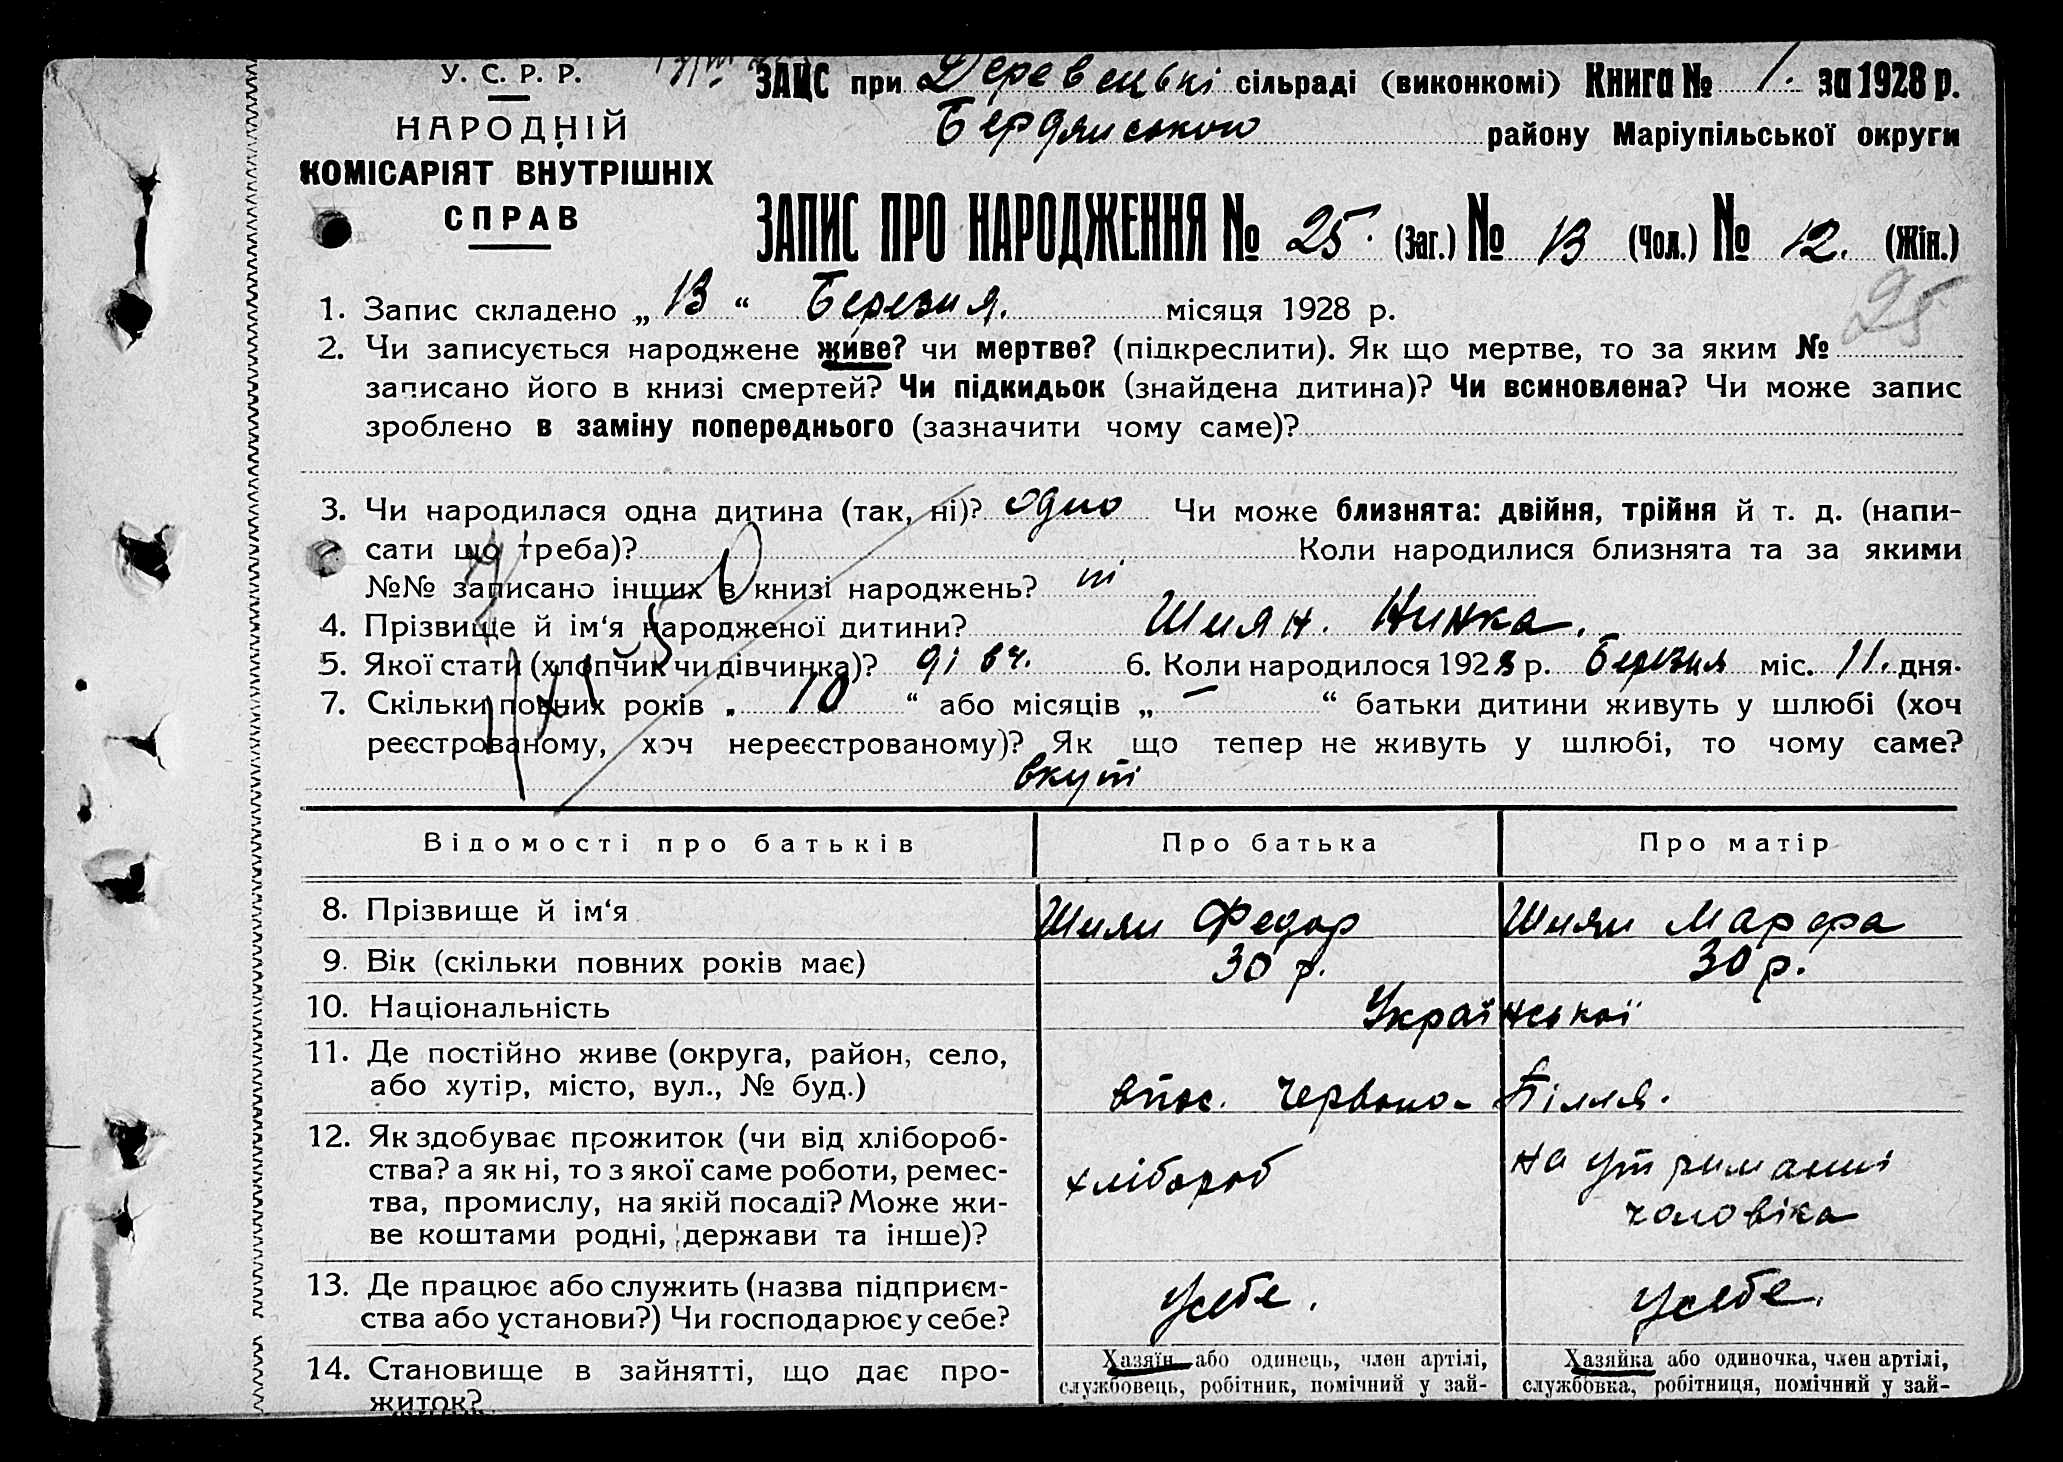 У. С. Р. Р.
НАРОДНІЙ
КОМІСАРІЯТ ВНУТРІШНІХ
СПРАВ
ЗАЦС при Деревецькі сільраді (виконкомі) Книга № 1. за 1928 р.
Бердянського району Маріупільської округи
ЗАПИС ПРО НАРОДЖЕННЯ № 25. (Заг.) № 13 (Чол.) № 12. (Жін.)
25
1. Запис складено „ 13 “ Березня. місяця 1928 р.
2. Чи записується народжене живе? чи мертве? (підкреслити). Як що мертве, то за яким №
записано його в книзі смертей? Чи підкидьок (знайдена дитина)? Чи всиновлена? Чи може запис
зроблено в заміну попереднього (зазначити чому саме)?
3. Чи народилася одна дитина (так, ні)? одно Чи може близнята: двійня, трійня й т. д. (напи-
сати що треба)? Коли народилися близнята та за якими
№№ записано інших в книзі народжень? ні
4. Прізвище й ім‘я народженої дитини? Шиян. Нинка.
5. Якої стати (хлопчик чи дівчинка)? дівч. 6. Коли народилося 1928 р. Березня міс. 11. дня.
7. Скільки повних років „ 10 “ або місяців „ — “ батьки дитини живуть у шлюбі (хоч
реєстрованому, хоч нереєстрованому)? Як що тепер не живуть у шлюбі, то чому саме?
вкупі
Відомості про батьків Про батька Про матір
8. Прізвище й ім‘я Шиян Федор Шиян Марфа
9. Вік (скільки повних років має) 30 р. 30 р.
10. Національність Української
11. Де постійно живе (округа, район, село,
або хутір, місто, вул., № буд.) впос. Червоно-Пілля.
12. Як здобуває прожиток (чи від хлібороб-
ства? а як ні, то з якої саме роботи, ремес-
тва, промислу, на якій посаді? Може жи-
ве коштами родні, держави та інше)?
хлібороб на утриманні
чоловіка
13. Де працює або служить (назва підприєм-
ства або установи?) Чи господарює у себе? Усебе. Усебе.
14. Становище в зайнятті, що дає про-
житок?
Хазяїн або одинець, член артілі,
службовець, робітник, помічний у зай-
Хазяйка або одиночка, член артілі,
службовка, робітниця, помічний у зай-